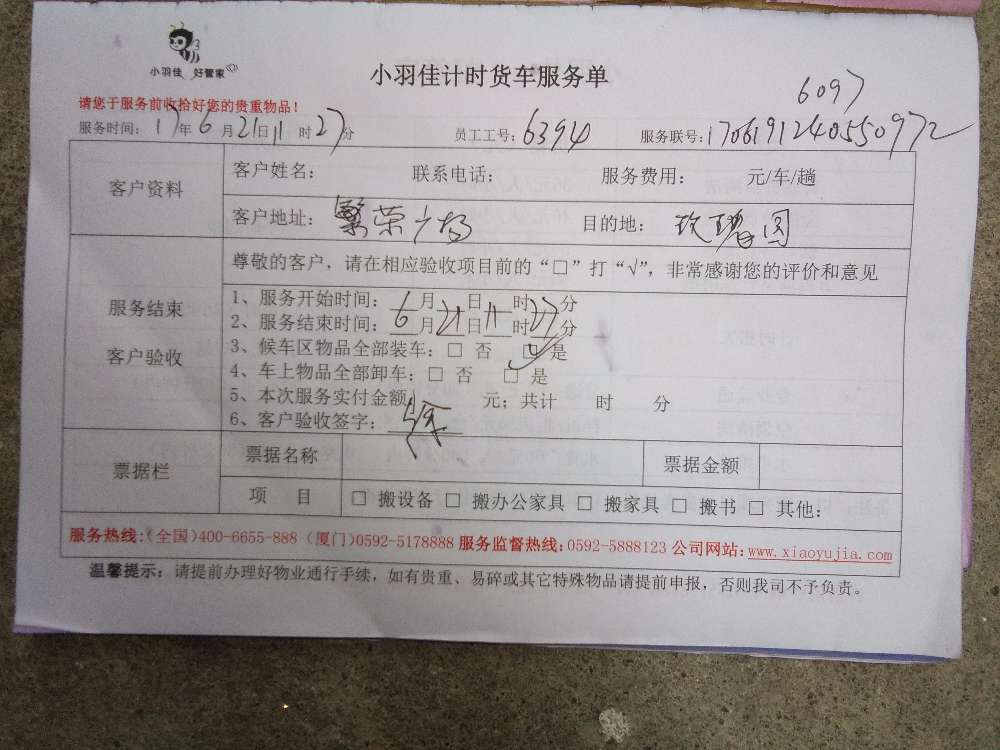 小羽佳 好管家
小羽佳计时货车服务单
6097
请您于服务前收拾好您的贵重物品！
服务时间：17年6月21日11时27分 员工工号：6394 服务联号：1706191240550972
客户资料 客户姓名： 联系电话： 服务费用： 元/车/趟
客户地址：繁荣广场 目的地：玫瑰园
尊敬的客户，请在相应验收项目前的“□”打“√”，非常感谢您的评价和意见
服务结束
客户验收
1、服务开始时间：6月21日11时27分
2、服务结束时间： 月 日 时 分
3、候车区物品全部装车：□ 否 □ 是
4、车上物品全部卸车：□ 否 □ 是
5、本次服务实付金额 元；共计 时 分
6、客户验收签字：
票据栏 票据名称 票据金额
项 目 □ 搬设备 □ 搬办公家具 □ 搬家具 □ 搬书 □ 其他：
服务热线：（全国）400-6655-888 （厦门）0592-5178888 服务监督热线：0592-5888123 公司网站：www.xiaoyujia.com
温馨提示：请提前办理好物业通行手续，如有贵重、易碎或其它特殊物品请提前申报，否则我司不予负责。